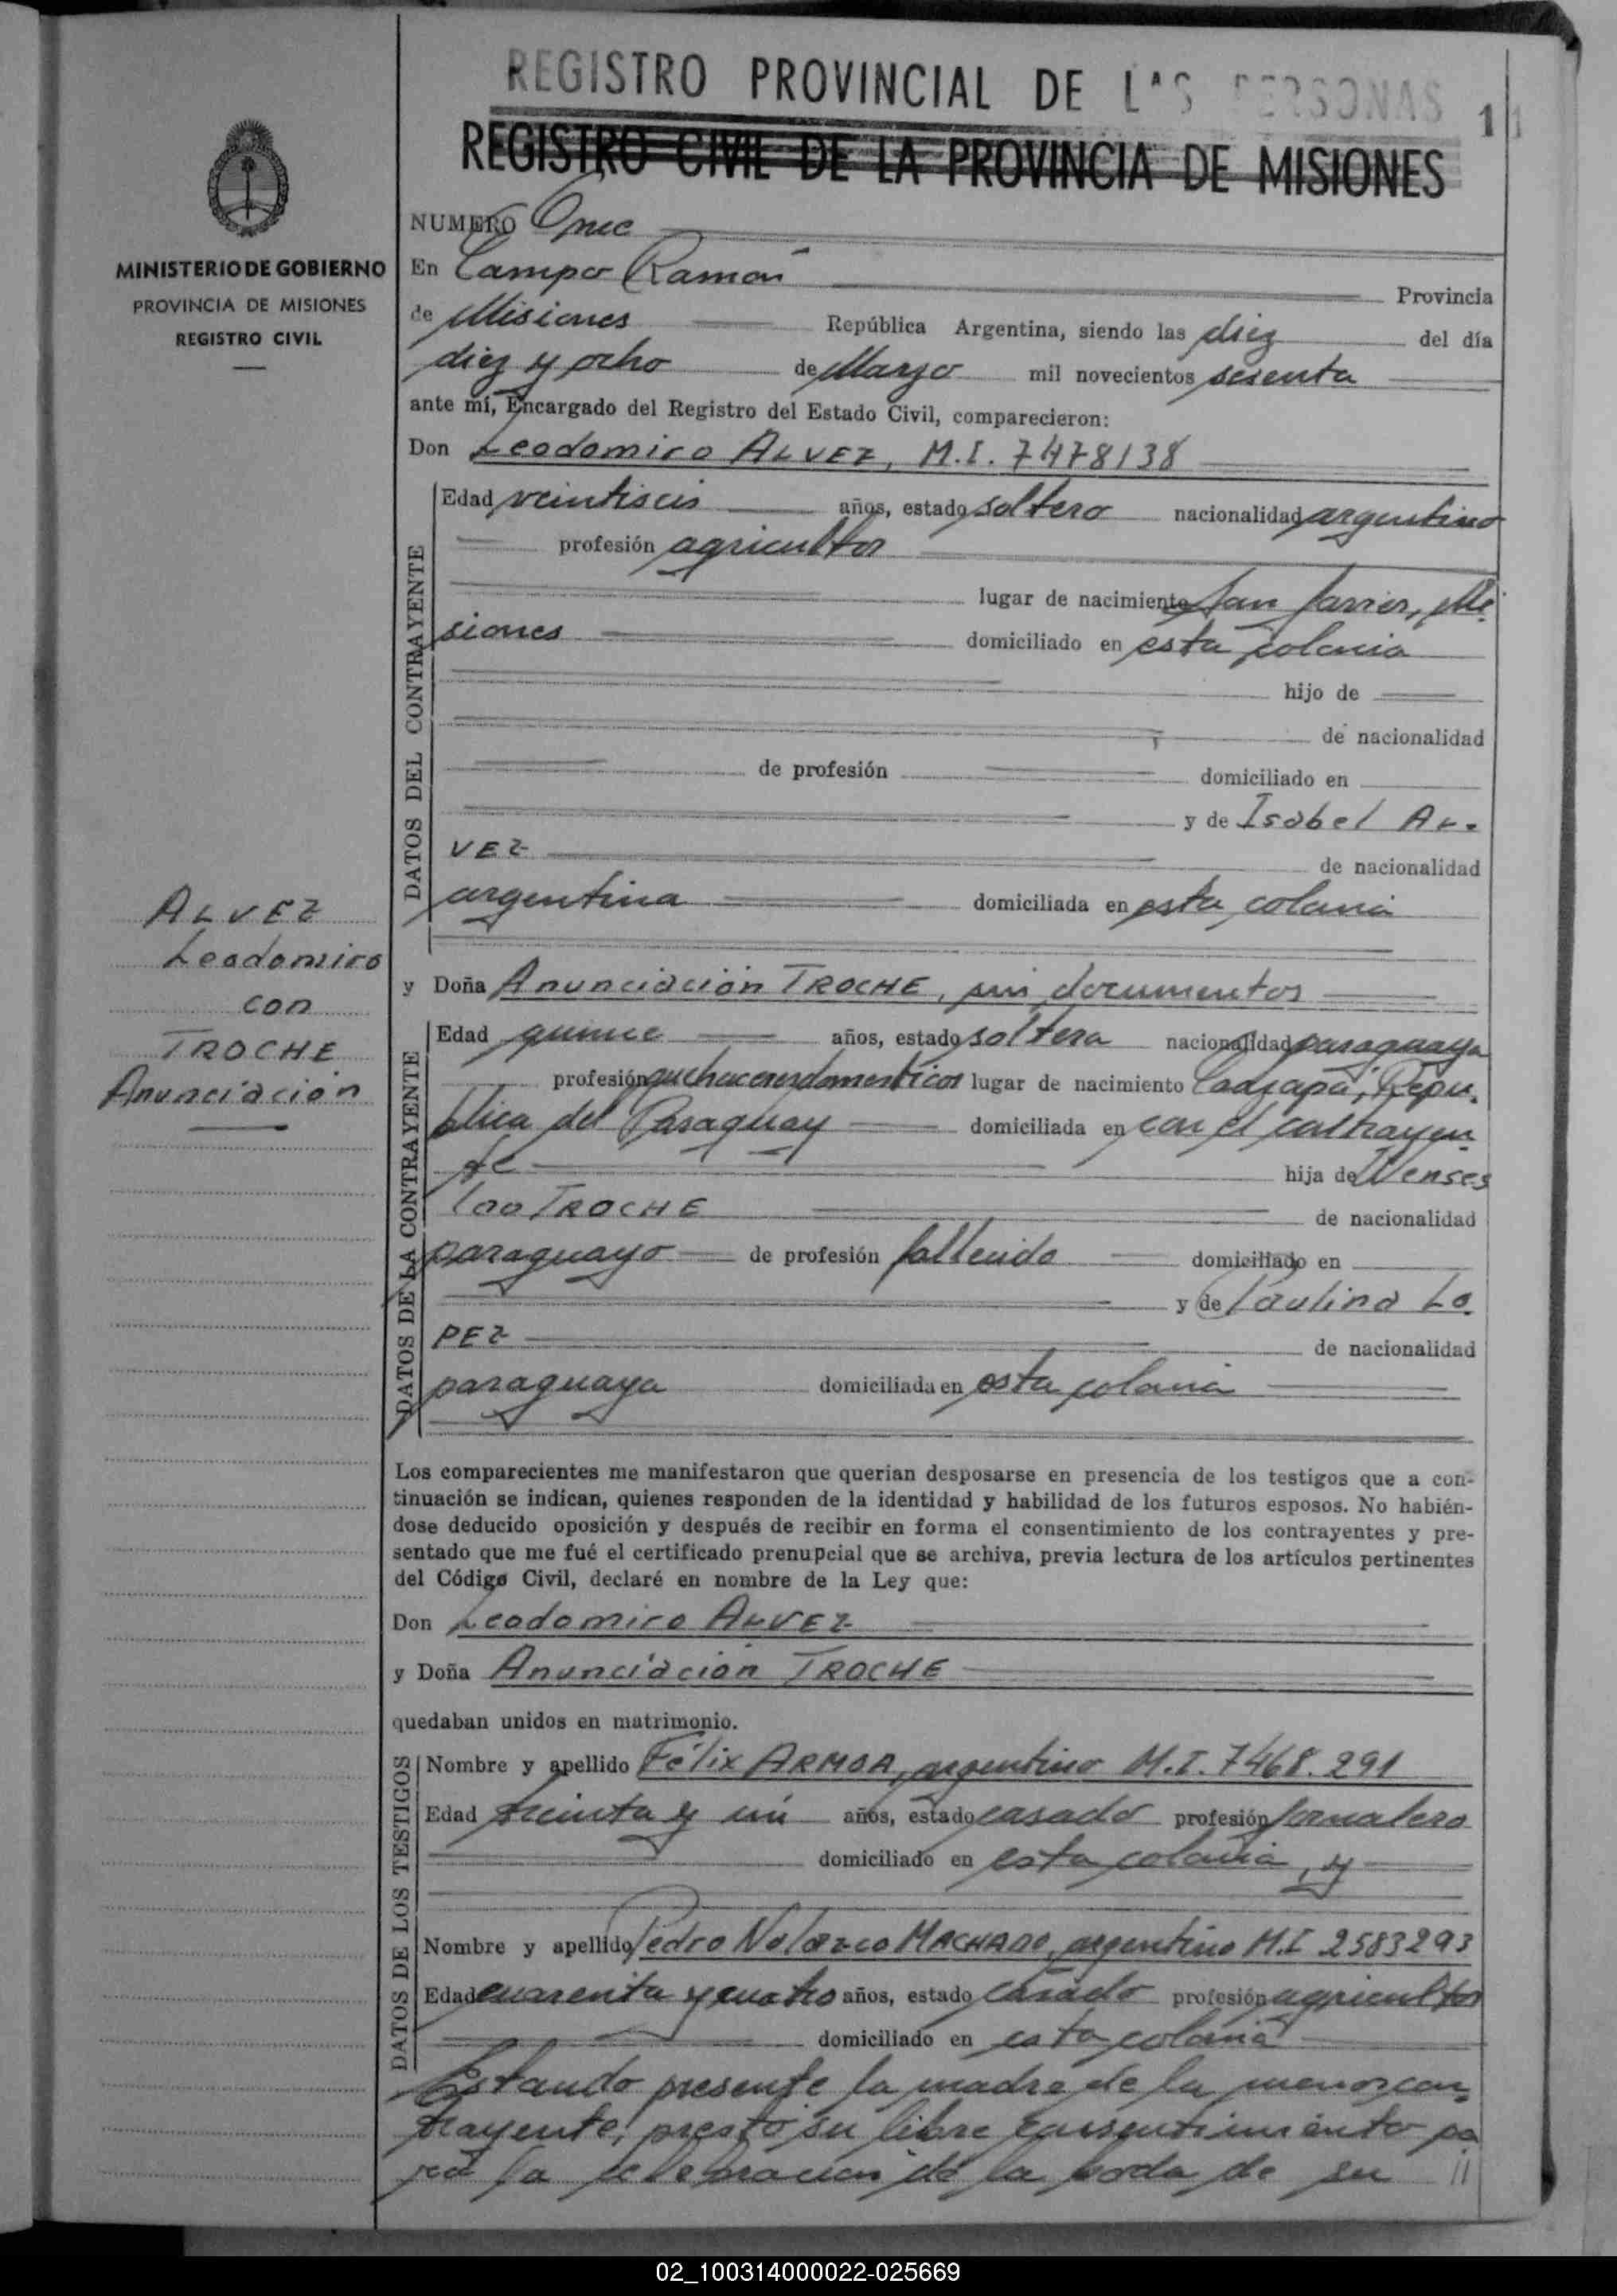 REGISTRO PROVINCIAL DE LAS PERSONAS
11
REGISTRO CIVIL DE LA PROVINCIA DE MISIONES
MINISTERIO DE GOBIERNO
PROVINCIA DE MISIONES
REGISTRO CIVIL
NUMERO Once
En Campo Ramón Provincia
de Misiones República Argentina, siendo las diez del día
diez y ocho de Marzo mil novecientos sesenta
ante mí, Encargado del Registro del Estado Civil, comparecieron:
Don Leodomiro ALVEZ, M.I. 7478138
DATOS DEL CONTRAYENTE
Edad veintiseis años, estado soltero nacionalidad argentino
profesión agricultor
lugar de nacimiento San Javier, Mi-
siones domiciliado en esta colonia
hijo de
de nacionalidad
de profesión domiciliado en
y de Isabel AL-
VEZ de nacionalidad
argentina domiciliada en esta colonia
ALVEZ
Leodomiro
con
TROCHE
Anunciación
y Doña Anunciación TROCHE, sin documentos
DATOS DE LA CONTRAYENTE
Edad quince años, estado soltera nacionalidad paraguaya
profesión quehaceres domesticos lugar de nacimiento Caazapá, Repu-
blica del Paraguay domiciliada en con el contrayen
te hija de Wenses
lao TROCHE de nacionalidad
paraguayo de profesión fallecido domiciliado en
y de Paulina LO-
PEZ de nacionalidad
paraguaya domiciliada en esta colonia
Los comparecientes me manifestaron que querian desposarse en presencia de los testigos que a con-
tinuación se indican, quienes responden de la identidad y habilidad de los futuros esposos. No habién-
dose deducido oposición y después de recibir en forma el consentimiento de los contrayentes y pre-
sentado que me fué el certificado prenupcial que se archiva, previa lectura de los artículos pertinentes
del Código Civil, declaré en nombre de la Ley que:
Don Leodomiro ALVEZ
y Doña Anunciación TROCHE
quedaban unidos en matrimonio.
DATOS DE LOS TESTIGOS
Nombre y apellido Félix ARMOA, argentino M.I. 7468.291
Edad treinta y un años, estado casado profesión jornalero
domiciliado en esta colonia, y
Nombre y apellido Pedro Nolazco MACHADO, argentino M.I 2583293
Edad cuarenta y cuatro años, estado casado profesión agricultor
domiciliado en esta colonia
Estando presente la madre de la menor con-
trayente, prestó su libre consentimiento pa
ra la celebracion de la boda de su //
02_100314000022-025669